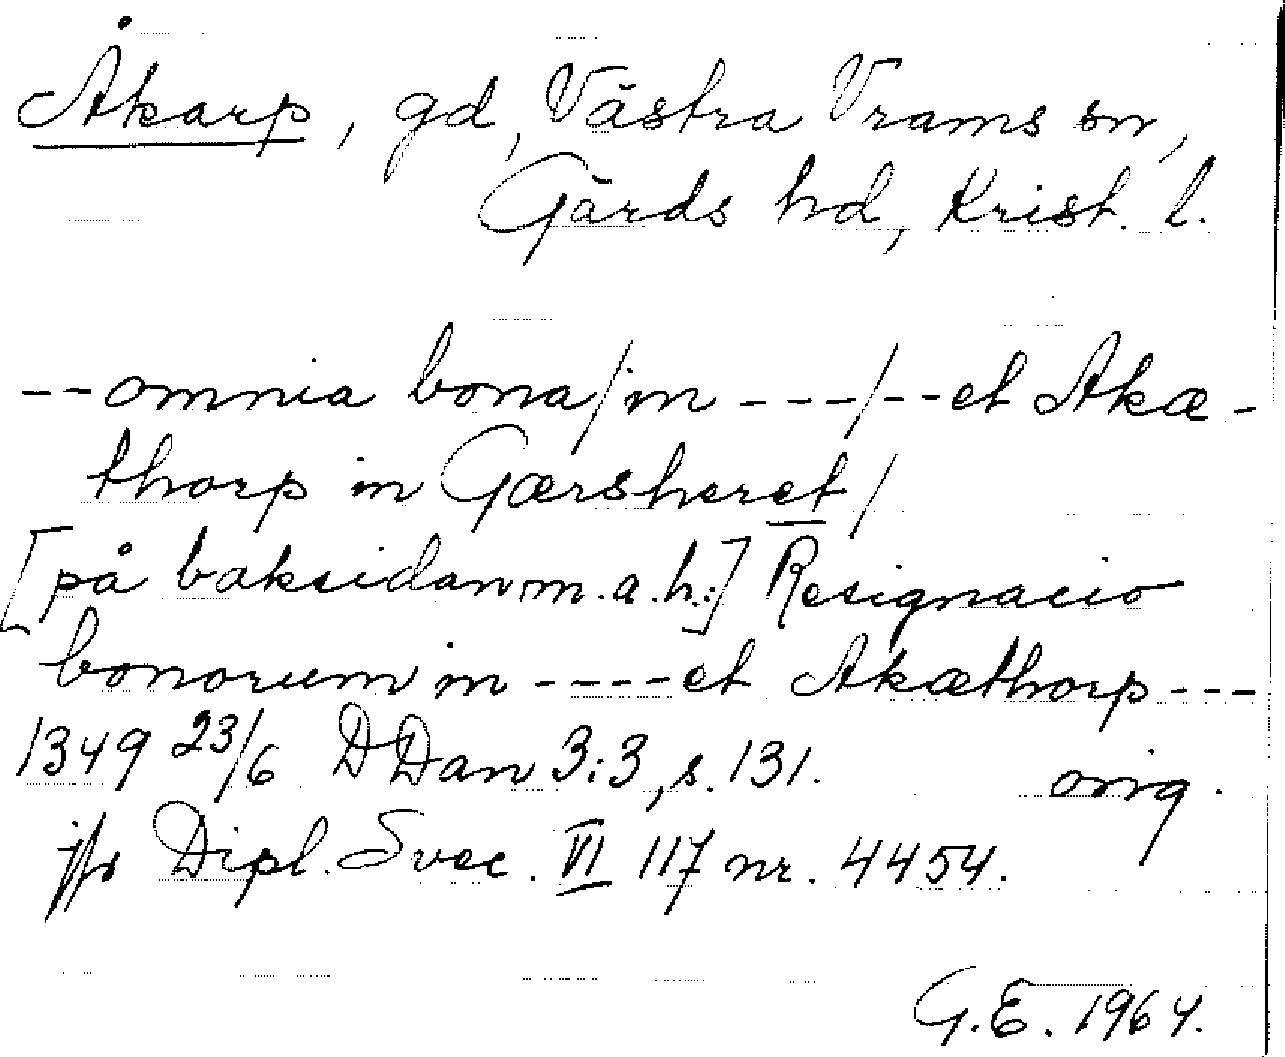 Åkarp, gd, Västra Vrams sn,
Gärds hd, Krist. l.
--omnia bona/in ---/--et Akæ-
thorp in Gærsheret/
[på baksidan m.a.h.:] Resignacio
bonorum in ----et Akæthorp---
1349 23/6 DDan 3:3, s. 131. orig.
jfr Dipl. Svec. VI 117 nr. 4454.
G.E. 1964.